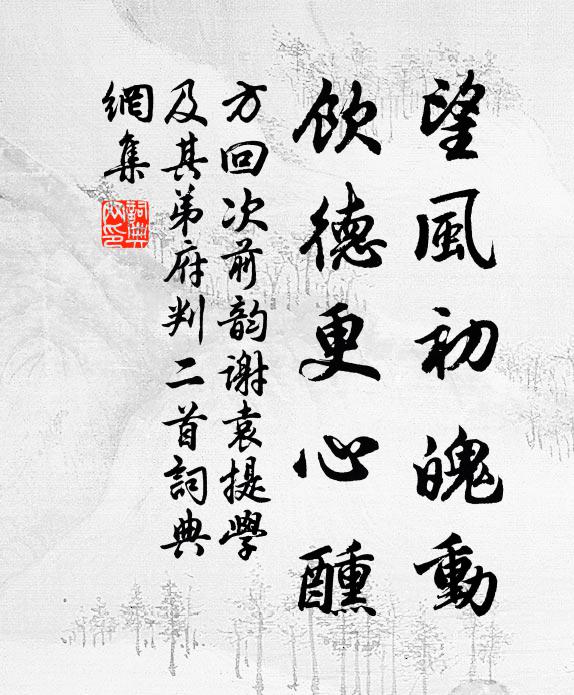 望風初魄動
飲德更心醺
方回次前韵謝袁提學
及其弟府判二首詞典
網集
詞典網印